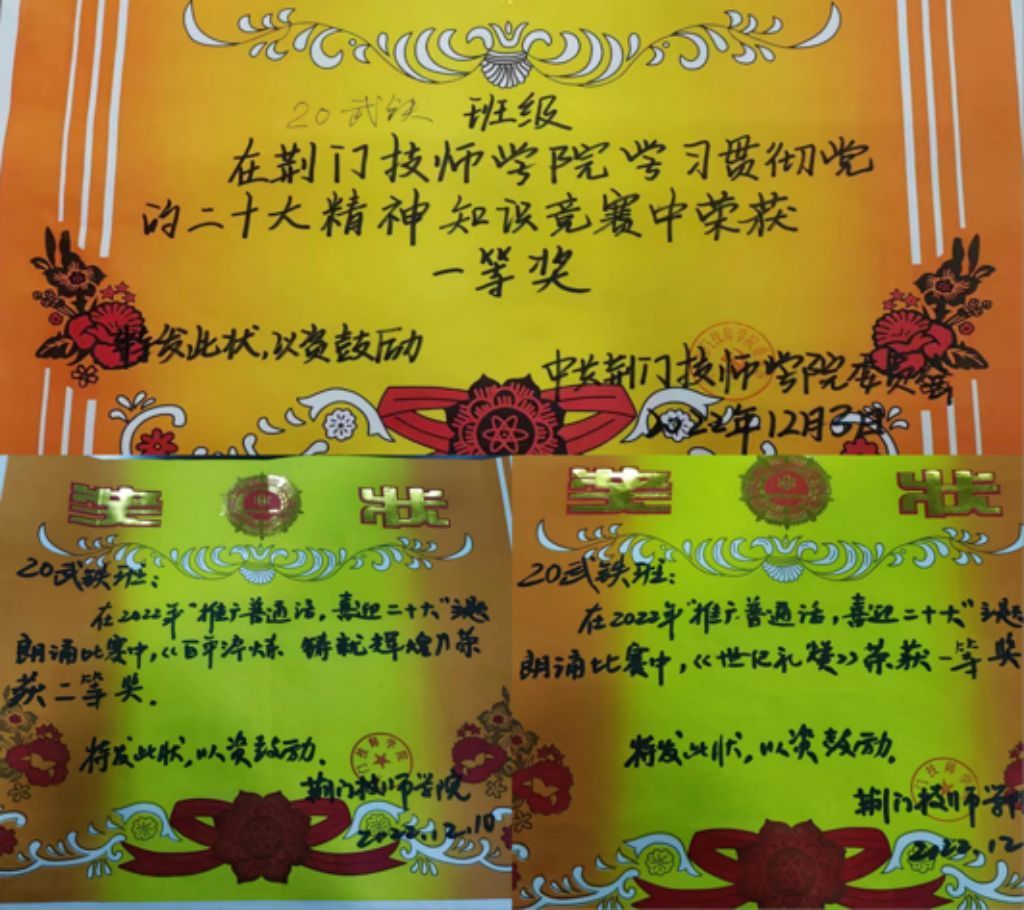 20武铁 班级
在荆门技师学院学习贯彻党
的二十大精神知识竞赛中荣获
一等奖
特发此状,以资鼓励
中共荆门技师学院委员会
2022年12月3日
奖 状
20武铁班:
在2022年“推广普通话,喜迎二十大”主题
朗诵比赛中,《百年淬炼 铸就辉煌》荣
获二等奖.
特发此状,以资鼓励.
荆门技师学院
2022.12.10
奖 状
20武铁班:
在2022年“推广普通话,喜迎二十大”主题
朗诵比赛中,《世纪礼赞》荣获一等奖
特发此状,以资鼓励.
荆门技师学
2022.12